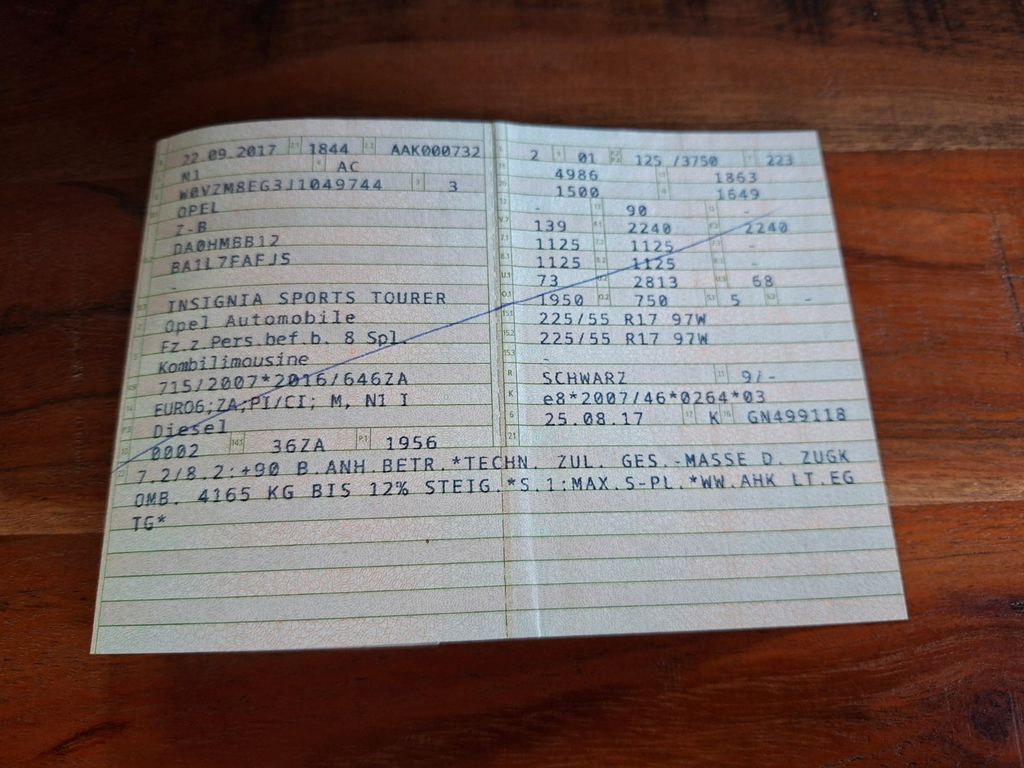 22.09.2017 1844 AAK000732
M1 AC
W0VZM8EG3J1049744 3
OPEL
Z-B
DA0HMBB12
BA1L7FAFJ5
-
INSIGNIA SPORTS TOURER
Opel Automobile
Fz.z.Pers.bef.b. 8 Spl.
Kombilimousine
715/2007*2016/646ZA
EURO6;ZA;PI/CI; M, N1 I
Diesel
0002 36ZA 1956
2 01 125 /3750 223
4986 1863
1500 1649
- 90 -
139 2240 2240
1125 1125 -
1125 1125 -
73 2813 68
1950 750 5 -
225/55 R17 97W
225/55 R17 97W
-
SCHWARZ 9/-
e8*2007/46*0264*03
25.08.17 K GN499118
7.2/8.2:+90 B.ANH.BETR.*TECHN. ZUL. GES.-MASSE D. ZUGK
OMB. 4165 KG BIS 12% STEIG.*S.1:MAX.S-PL.*WW.AHK LT.EG
TG*